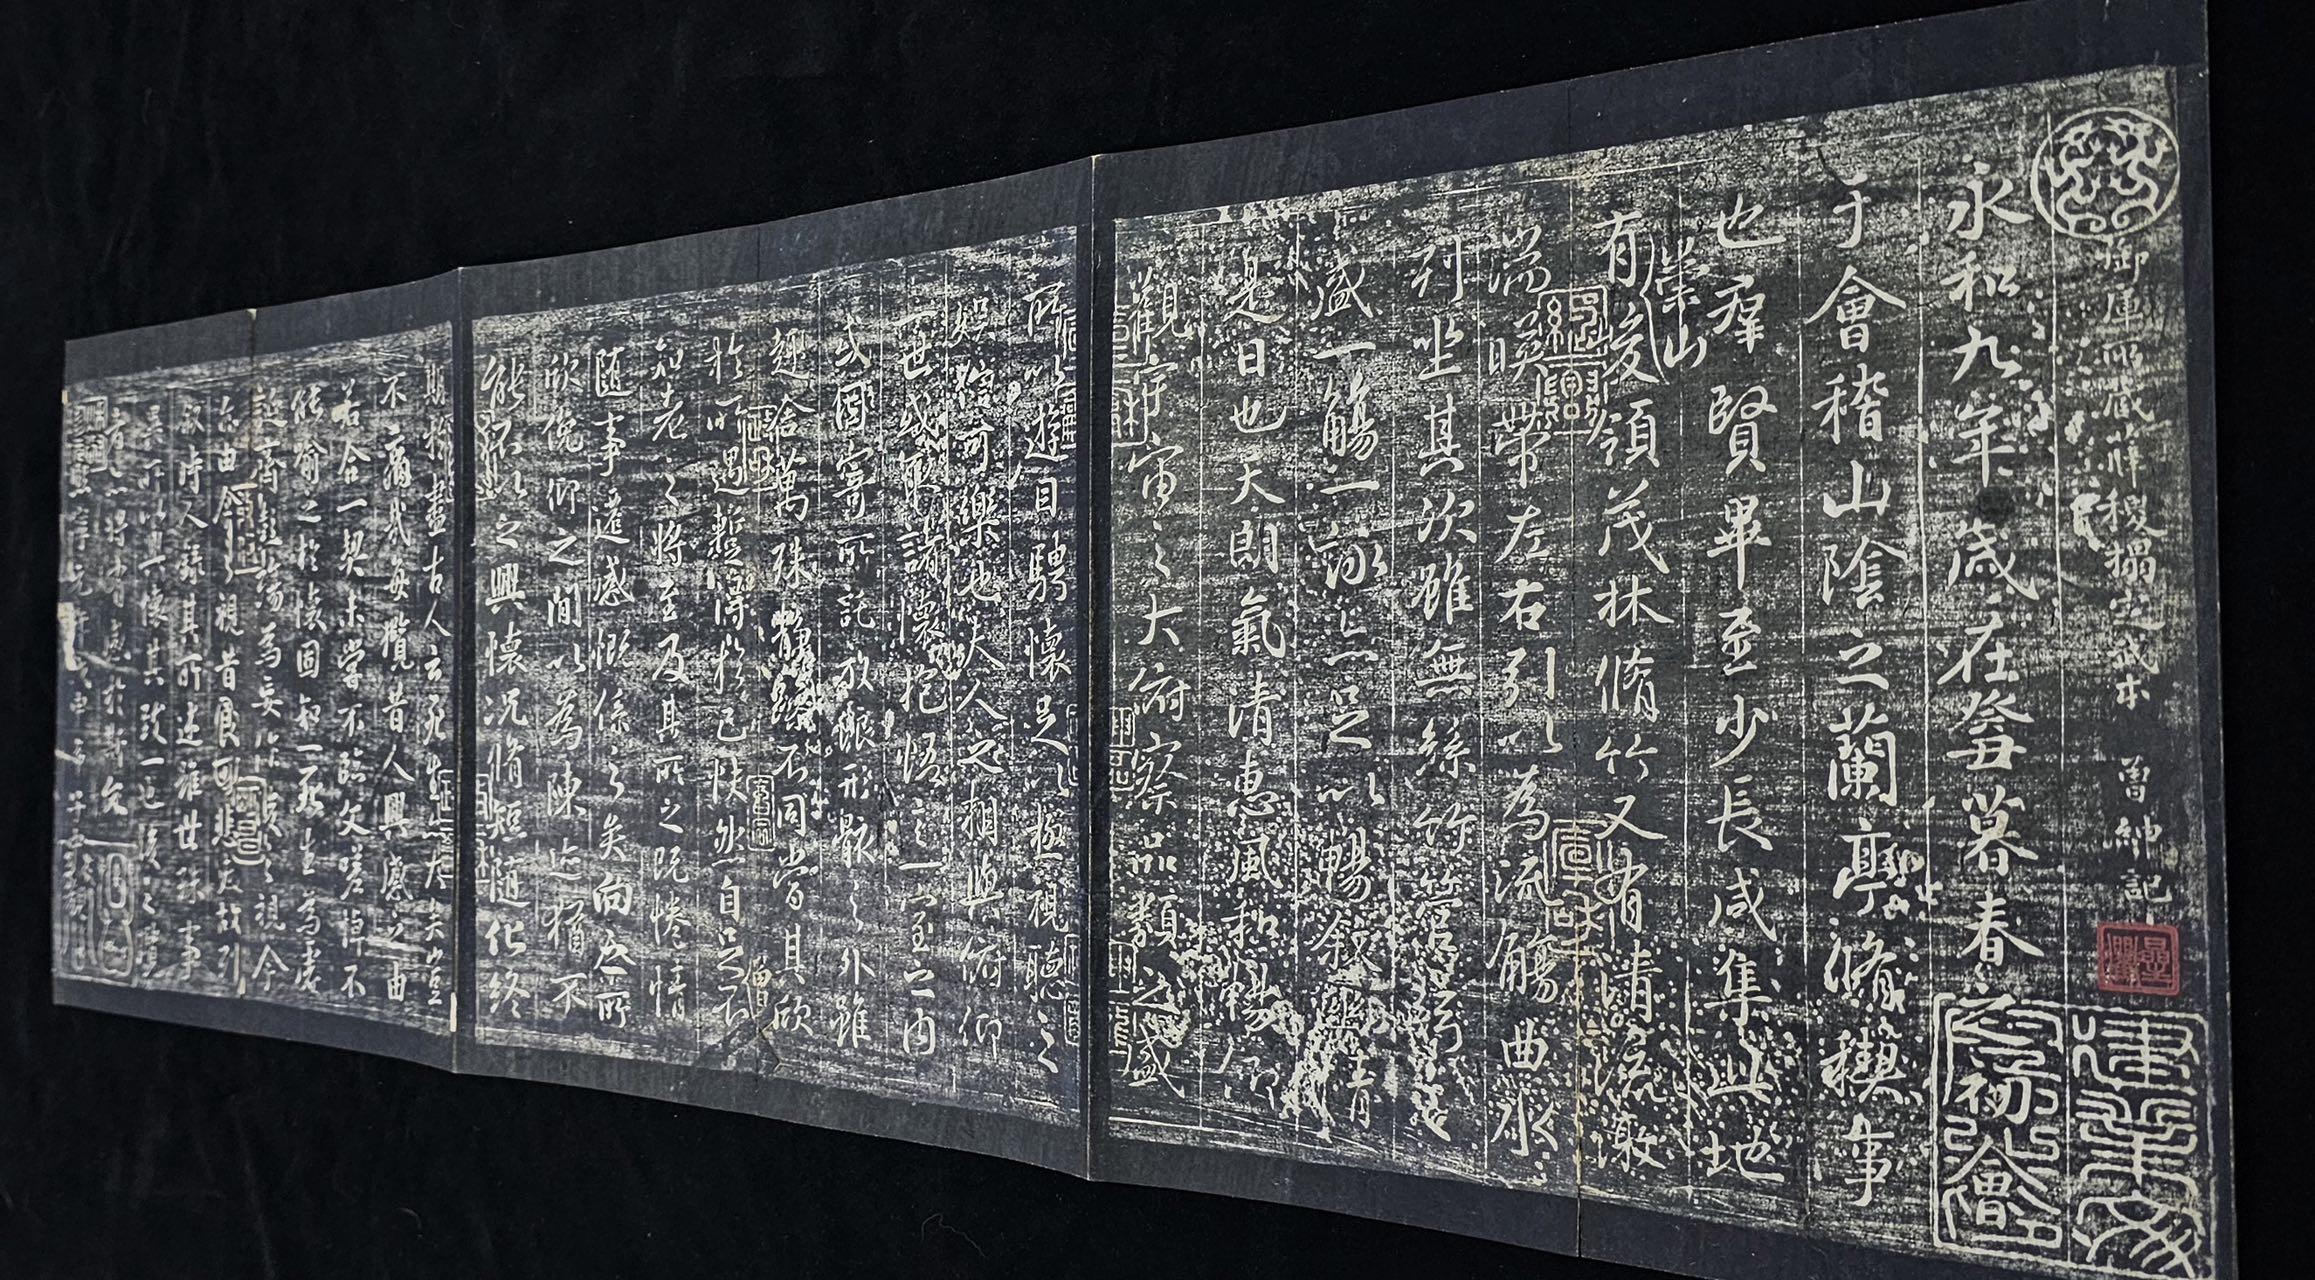 御庫所藏薛稷搨定武本 曾紳記
永和九年歲在癸丑暮春之初會
于會稽山陰之蘭亭脩稧事
也羣賢畢至少長咸集此地
有崇山峻領茂林脩竹又有清流激
湍暎帶左右引以為流觴曲水
列坐其次雖無絲竹管弦之
盛一觴一詠亦足以暢敘幽情
是日也天朗氣清惠風和暢仰
觀宇宙之大俯察品類之盛
所以遊目騁懷足以極視聽之
娛信可樂也夫人之相與俯仰
一世或取諸懷抱悟言一室之內
或因寄所託放浪形骸之外雖
趣舍萬殊靜躁不同當其欣
於所遇暫得於己怏然自足不
知老之將至及其所之既惓情
隨事遷感慨係之矣向之所
欣俛仰之間以為陳迹猶不
能不以之興懷況脩短隨化終
期於盡古人云死生亦大矣豈
不痛哉每攬昔人興感之由
若合一契未嘗不臨文嗟悼不
能喻之於懷固知一死生為虛
誕齊彭殤為妄作後之視今
亦由今之視昔悲夫故列
敘時人錄其所述雖世殊事
異所以興懷其致一也後之攬
者亦將有感於斯文